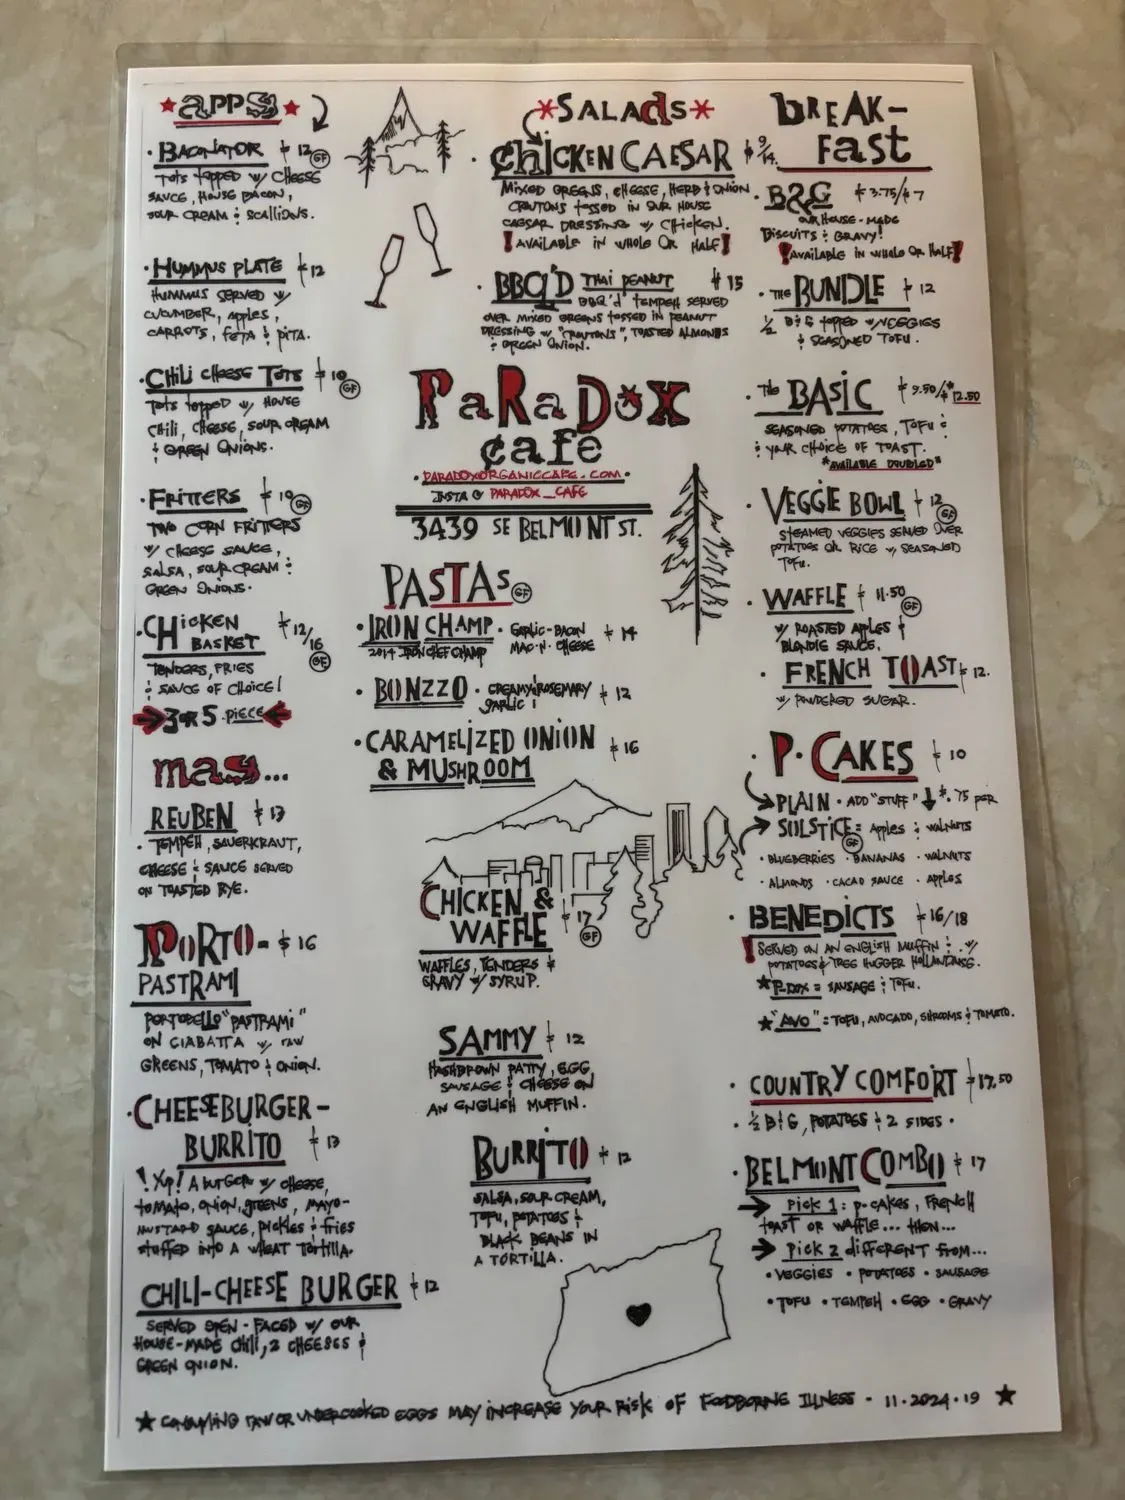 ★ APPS ★
· BACONATOR $12 GF
TOTS TOPPED W/ CHEESE
SAUCE, HOUSE BACON,
SOUR CREAM & SCALLIONS.
· HUMMUS PLATE $12
HUMMUS SERVED W/
CUCUMBER, APPLES,
CARROTS, FETA & PITA.
· CHILI CHEESE TOTS $10 GF
TOTS TOPPED W/ HOUSE
CHILI, CHEESE, SOUR CREAM
& GREEN ONIONS.
· FRITTERS $10 GF
TWO CORN FRITTERS
W/ CHEESE SAUCE,
SALSA, SOUR CREAM &
GREEN ONIONS.
· CHICKEN BASKET $12/16 GF
TENDERS, FRIES
& SAUCE OF CHOICE!
3 OR 5 · PIECE
MAS...
REUBEN $13
· TEMPEH, SAUERKRAUT,
CHEESE & SAUCE SERVED
ON TOASTED RYE.
PORTO- $16
PASTRAMI
PORTOBELLO "PASTRAMI"
ON CIABATTA W/ RAW
GREENS, TOMATO & ONION.
· CHEESEBURGER-
BURRITO $13
! YUP! A BURGER W/ CHEESE,
TOMATO, ONION, GREENS, MAYO-
MUSTARD SAUCE, PICKLES & FRIES
STUFFED INTO A WHEAT TORTILLA.
CHILI-CHEESE BURGER $12
SERVED OPEN-FACED W/ OUR
HOUSE-MADE CHILI, 2 CHEESES &
GREEN ONION.
*SALADS*
· CHICKEN CAESAR $9/14.
MIXED GREENS, CHEESE, HERB & ONION
CROUTONS TOSSED IN OUR HOUSE
CAESAR DRESSING W/ CHICKEN.
! AVAILABLE IN WHOLE OR HALF!
· BBQ'D THAI PEANUT $15
BBQ'D TEMPEH SERVED
OVER MIXED GREENS TOSSED IN PEANUT
DRESSING W/ "CROUTONS", TOASTED ALMONDS
& GREEN ONION.
PARADOX
CAFE
· PARADOXORGANICCAFE.COM ·
INSTA @ PARADOX_CAFE
3439 SE BELMONT ST.
PASTAS GF
· IRON CHAMP · GARLIC-BACON $14
2014 IRON CHEF CHAMP MAC·N·CHEESE
· BONZZO · CREAMY ROSEMARY $12
GARLIC!
· CARAMELIZED ONION $16
& MUSHROOM
CHICKEN &
WAFFLE $17 GF
WAFFLES, TENDERS &
GRAVY W/ SYRUP.
SAMMY $12
HASHBROWN PATTY, EGG,
SAUSAGE & CHEESE ON
AN ENGLISH MUFFIN.
BURRITO $12
SALSA, SOUR CREAM,
TOFU, POTATOES &
BLACK BEANS IN
A TORTILLA.
BREAK-
FAST
· B&G $3.75/$7
OUR HOUSE-MADE
BISCUITS & GRAVY!
! AVAILABLE IN WHOLE OR HALF!
· THE BUNDLE $12
½ B&G TOPPED W/ VEGGIES
& SEASONED TOFU.
· THE BASIC $9.50/*12.50
SEASONED POTATOES, TOFU &
& YOUR CHOICE OF TOAST.
*AVAILABLE DOUBLED*
VEGGIE BOWL $12 GF
STEAMED VEGGIES SERVED OVER
POTATOES OR RICE W/ SEASONED
TOFU.
· WAFFLE $11.50 GF
W/ ROASTED APPLES &
BLONDIE SAUCE.
· FRENCH TOAST $12.
W/ POWDERED SUGAR.
· P·CAKES $10
PLAIN · ADD "STUFF" $.75 PER
SOLSTICE = APPLES & WALNUTS
GF
· BLUEBERRIES · BANANAS · WALNUTS
· ALMONDS · CACAO SAUCE · APPLES
· BENEDICTS $16/18
! SERVED ON AN ENGLISH MUFFIN & W/
POTATOES & TREE HUGGER HOLLANDAISE.
★ P-DOX = SAUSAGE & TOFU.
★ "AVO" : TOFU, AVOCADO, SHROOMS & TOMATO.
· COUNTRY COMFORT $17.50
· ½ B&G, POTATOES & 2 SIDES ·
· BELMONT COMBO $17
→ PICK 1 : P·CAKES, FRENCH
TOAST OR WAFFLE... THEN...
→ PICK 2 DIFFERENT FROM...
· VEGGIES · POTATOES · SAUSAGE
· TOFU · TEMPEH · EGG · GRAVY
★ CONSUMING RAW OR UNDERCOOKED EGGS MAY INCREASE YOUR RISK OF FOODBORNE ILLNESS - 11·2024·19 ★